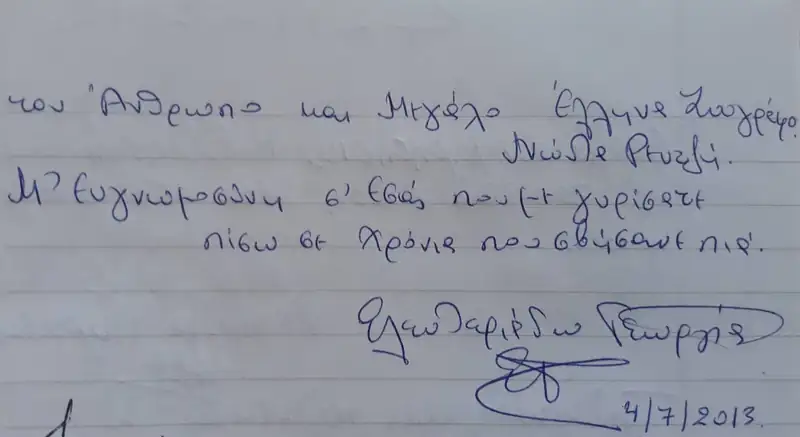 του Άνθρωπο και Μεγάλο Έλληνα Ζωγράφο.
Νικόλα
Μ' Ευγνωμοσύνη σ' Εσάς που με γυρίσατε
πίσω σε Χρόνια που σβήσανε πιά.
Ελευθεριάδου Γεωργία
4/7/2013.